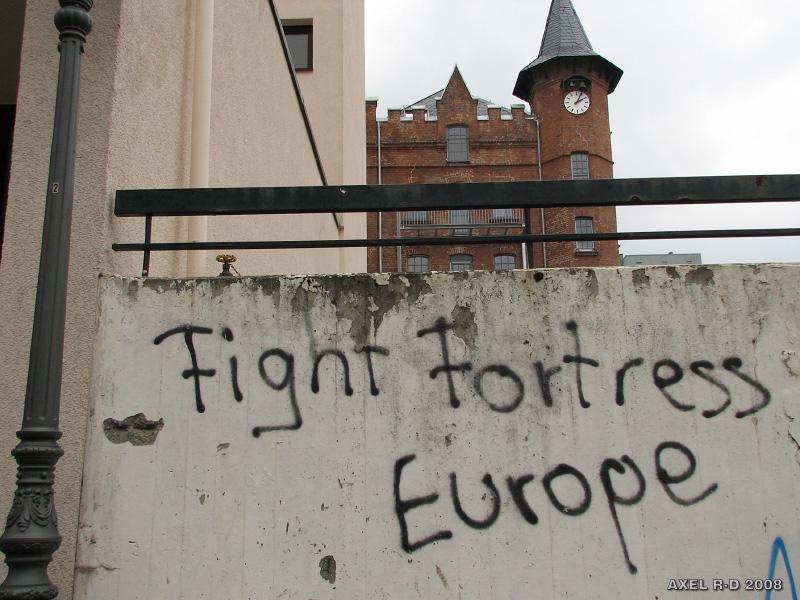 Fight Fortress
Europe
2
AXEL R-D 2008